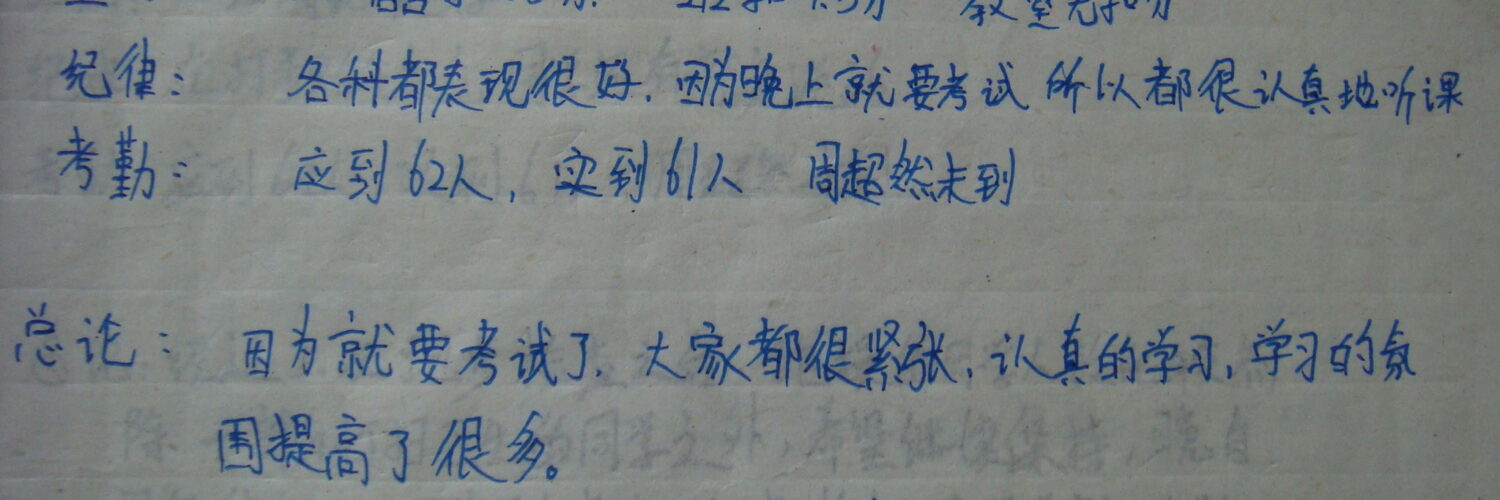 纪律： 各科都表现很好，因为晚上就要考试 所以都很认真地听课
考勤： 应到62人，实到61人 周超然未到
总论： 因为就要考试了，大家都很紧张，认真的学习，学习的氛
围提高了很多。